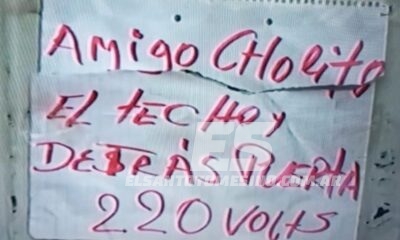 AMIGO CHORITO
EL TECHO Y
DETRÁS PUERTA
220 VOLTS